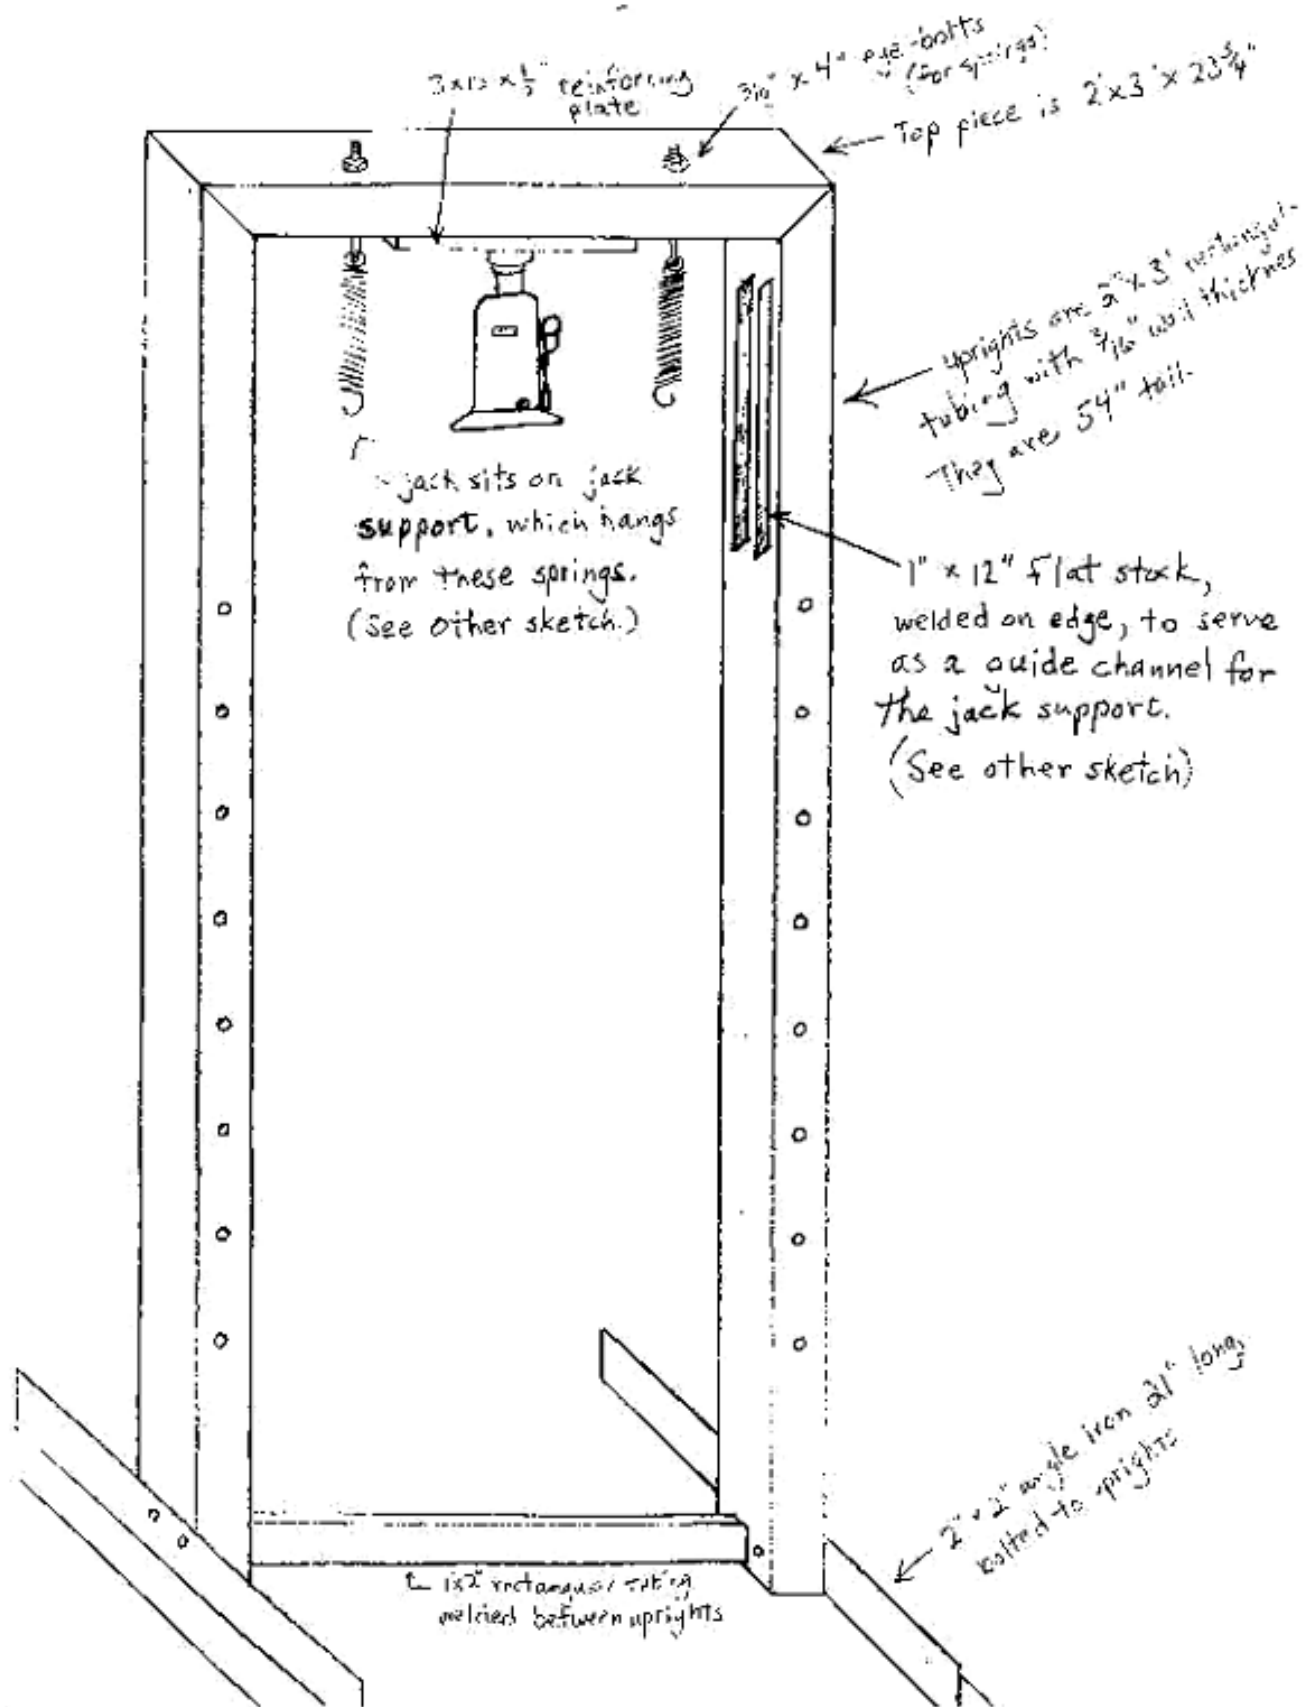 3x12 x ½" reinforcing
plate
3/16" x 4" eye-bolts
(for springs)
Top piece is 2"x3"x 23 ¾"
uprights are 2"x3"
tubing with 3/16" wall thickness
They are 54" tall.
jack sits on jack
support, which hangs
from these springs.
(See other sketch.)
1" x 12" flat stock,
welded on edge, to serve
as a guide channel for
the jack support.
(See other sketch)
2" x 2" angle iron 21" long,
bolted to uprights
1x2" rectangular tubing
welded between uprights